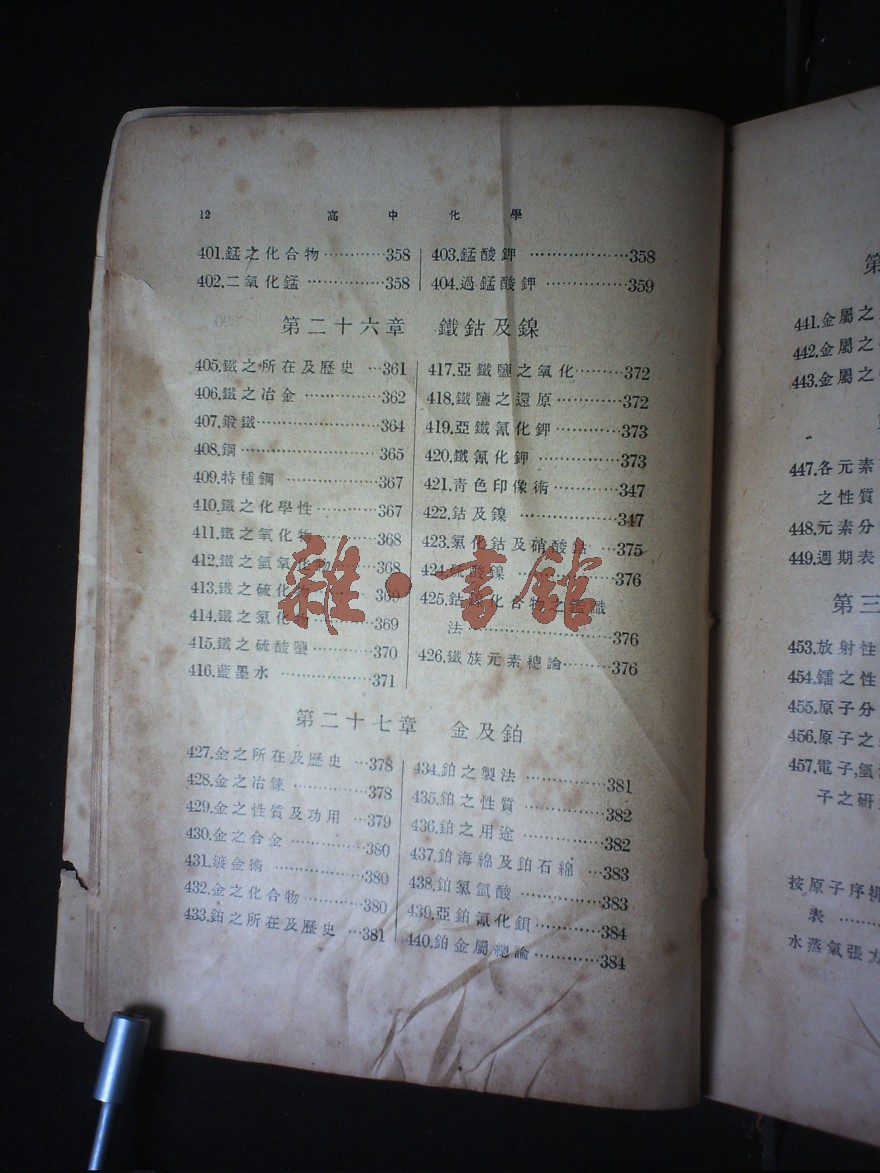 12 高中化學
401.錳之化合物…………358
402.二氧化錳……………358
403.錳酸鉀…………………358
404.過錳酸鉀………………359
第二十六章 鐵鈷及鎳
405.鐵之所在及歷史…361
406.鐵之冶金……………362
407.鍛鐵……………………364
408.鋼………………………365
409.特種鋼………………367
410.鐵之化學性…………367
411.鐵之氧化物…………368
412.鐵之氫氧化物………368
413.鐵之硫化物…………369
414.鐵之氯化物…………369
415.鐵之硫酸鹽…………370
416.藍墨水………………371
417.亞鐵鹽之氧化………372
418.鐵鹽之還原…………372
419.亞鐵氰化鉀…………373
420.鐵氰化鉀……………373
421.青色印像術…………347
422.鈷及鎳………………347
423.氯化鈷及硝酸鈷…375
424.硫酸鎳………………376
425.鈷鎳化合物之鑑識
法………………………376
426.鐵族元素總論………376
第二十七章 金及鉑
427.金之所在及歷史…378
428.金之冶鍊……………378
429.金之性質及功用…379
430.金之合金……………380
431.鍍金術………………380
432.金之化合物…………380
433.鉑之所在及歷史…381
434.鉑之製法……………381
435.鉑之性質……………382
436.鉑之用途……………382
437.鉑海綿及鉑石綿…383
438.鉑氯氫酸……………383
439.亞鉑氰化鋇…………384
440.鉑金屬總論…………384
雜·書館
第
441.金屬之
442.金屬之
443.金屬之
447.各元素
之性質
448.元素分
449.週期表
第三
453.放射性
454.鐳之性
455.原子分
456.原子之
457.電子,氫
子之研
按原子序排
表……
水蒸氣張力